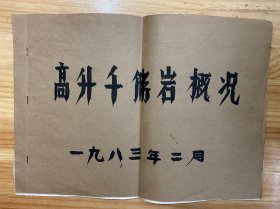 高升千佛岩概况
一九八三年二月